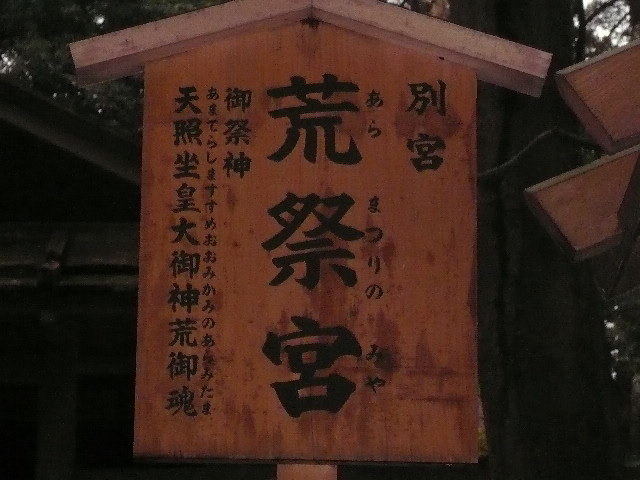 別宮
あらまつりのみや
荒祭宮
御祭神
あまてらしますすめおおみかみのあらみたま
天照坐皇大御神荒御魂